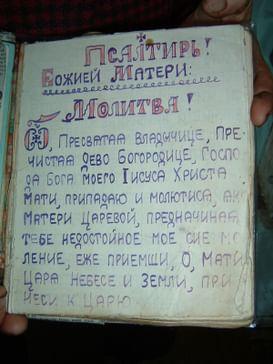 Псалтирь!
Божией Матери:
Молитва!
О, Пресватаа Владычице, Пре-
чистаа Дево Богородице, Госпо
да Бога моего Iисуса Христа
Мати, припадаю и молютиса, ако
Матери Царевой, предначинаа
тебе недостойное мое сие мо
ление, еже приемши, О, Мати
Цара Небесе и Земли, при
неси к Царю